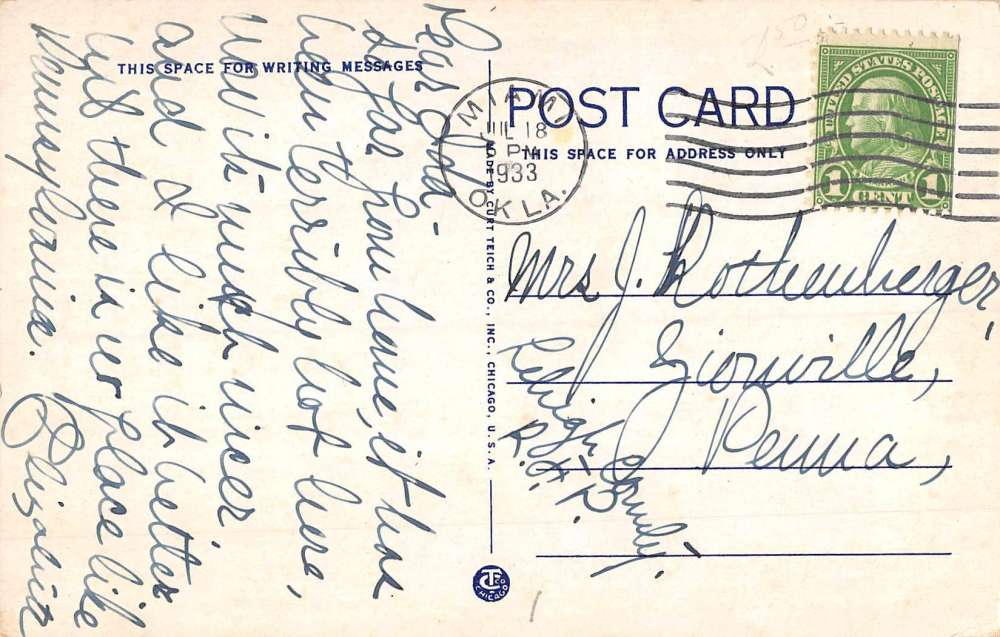 THIS SPACE FOR WRITING MESSAGES
Dear
far from home, it has
been terribly hot here,
now it's much nicer
and I like it better
but there is no place like
Pennsylvania. Elizabeth
MADE BY CURT TEICH & CO., INC., CHICAGO, U.S.A.
POST CARD
THIS SPACE FOR ADDRESS ONLY
MIAMI
JUL 18
PM
1933
OKLA.
UNITED STATES POSTAGE
1 CENT 1
Mrs J. Rothenberger,
Zionville,
Penna,
Lehigh County,
R.F.D.
CT CO
CHICAGO